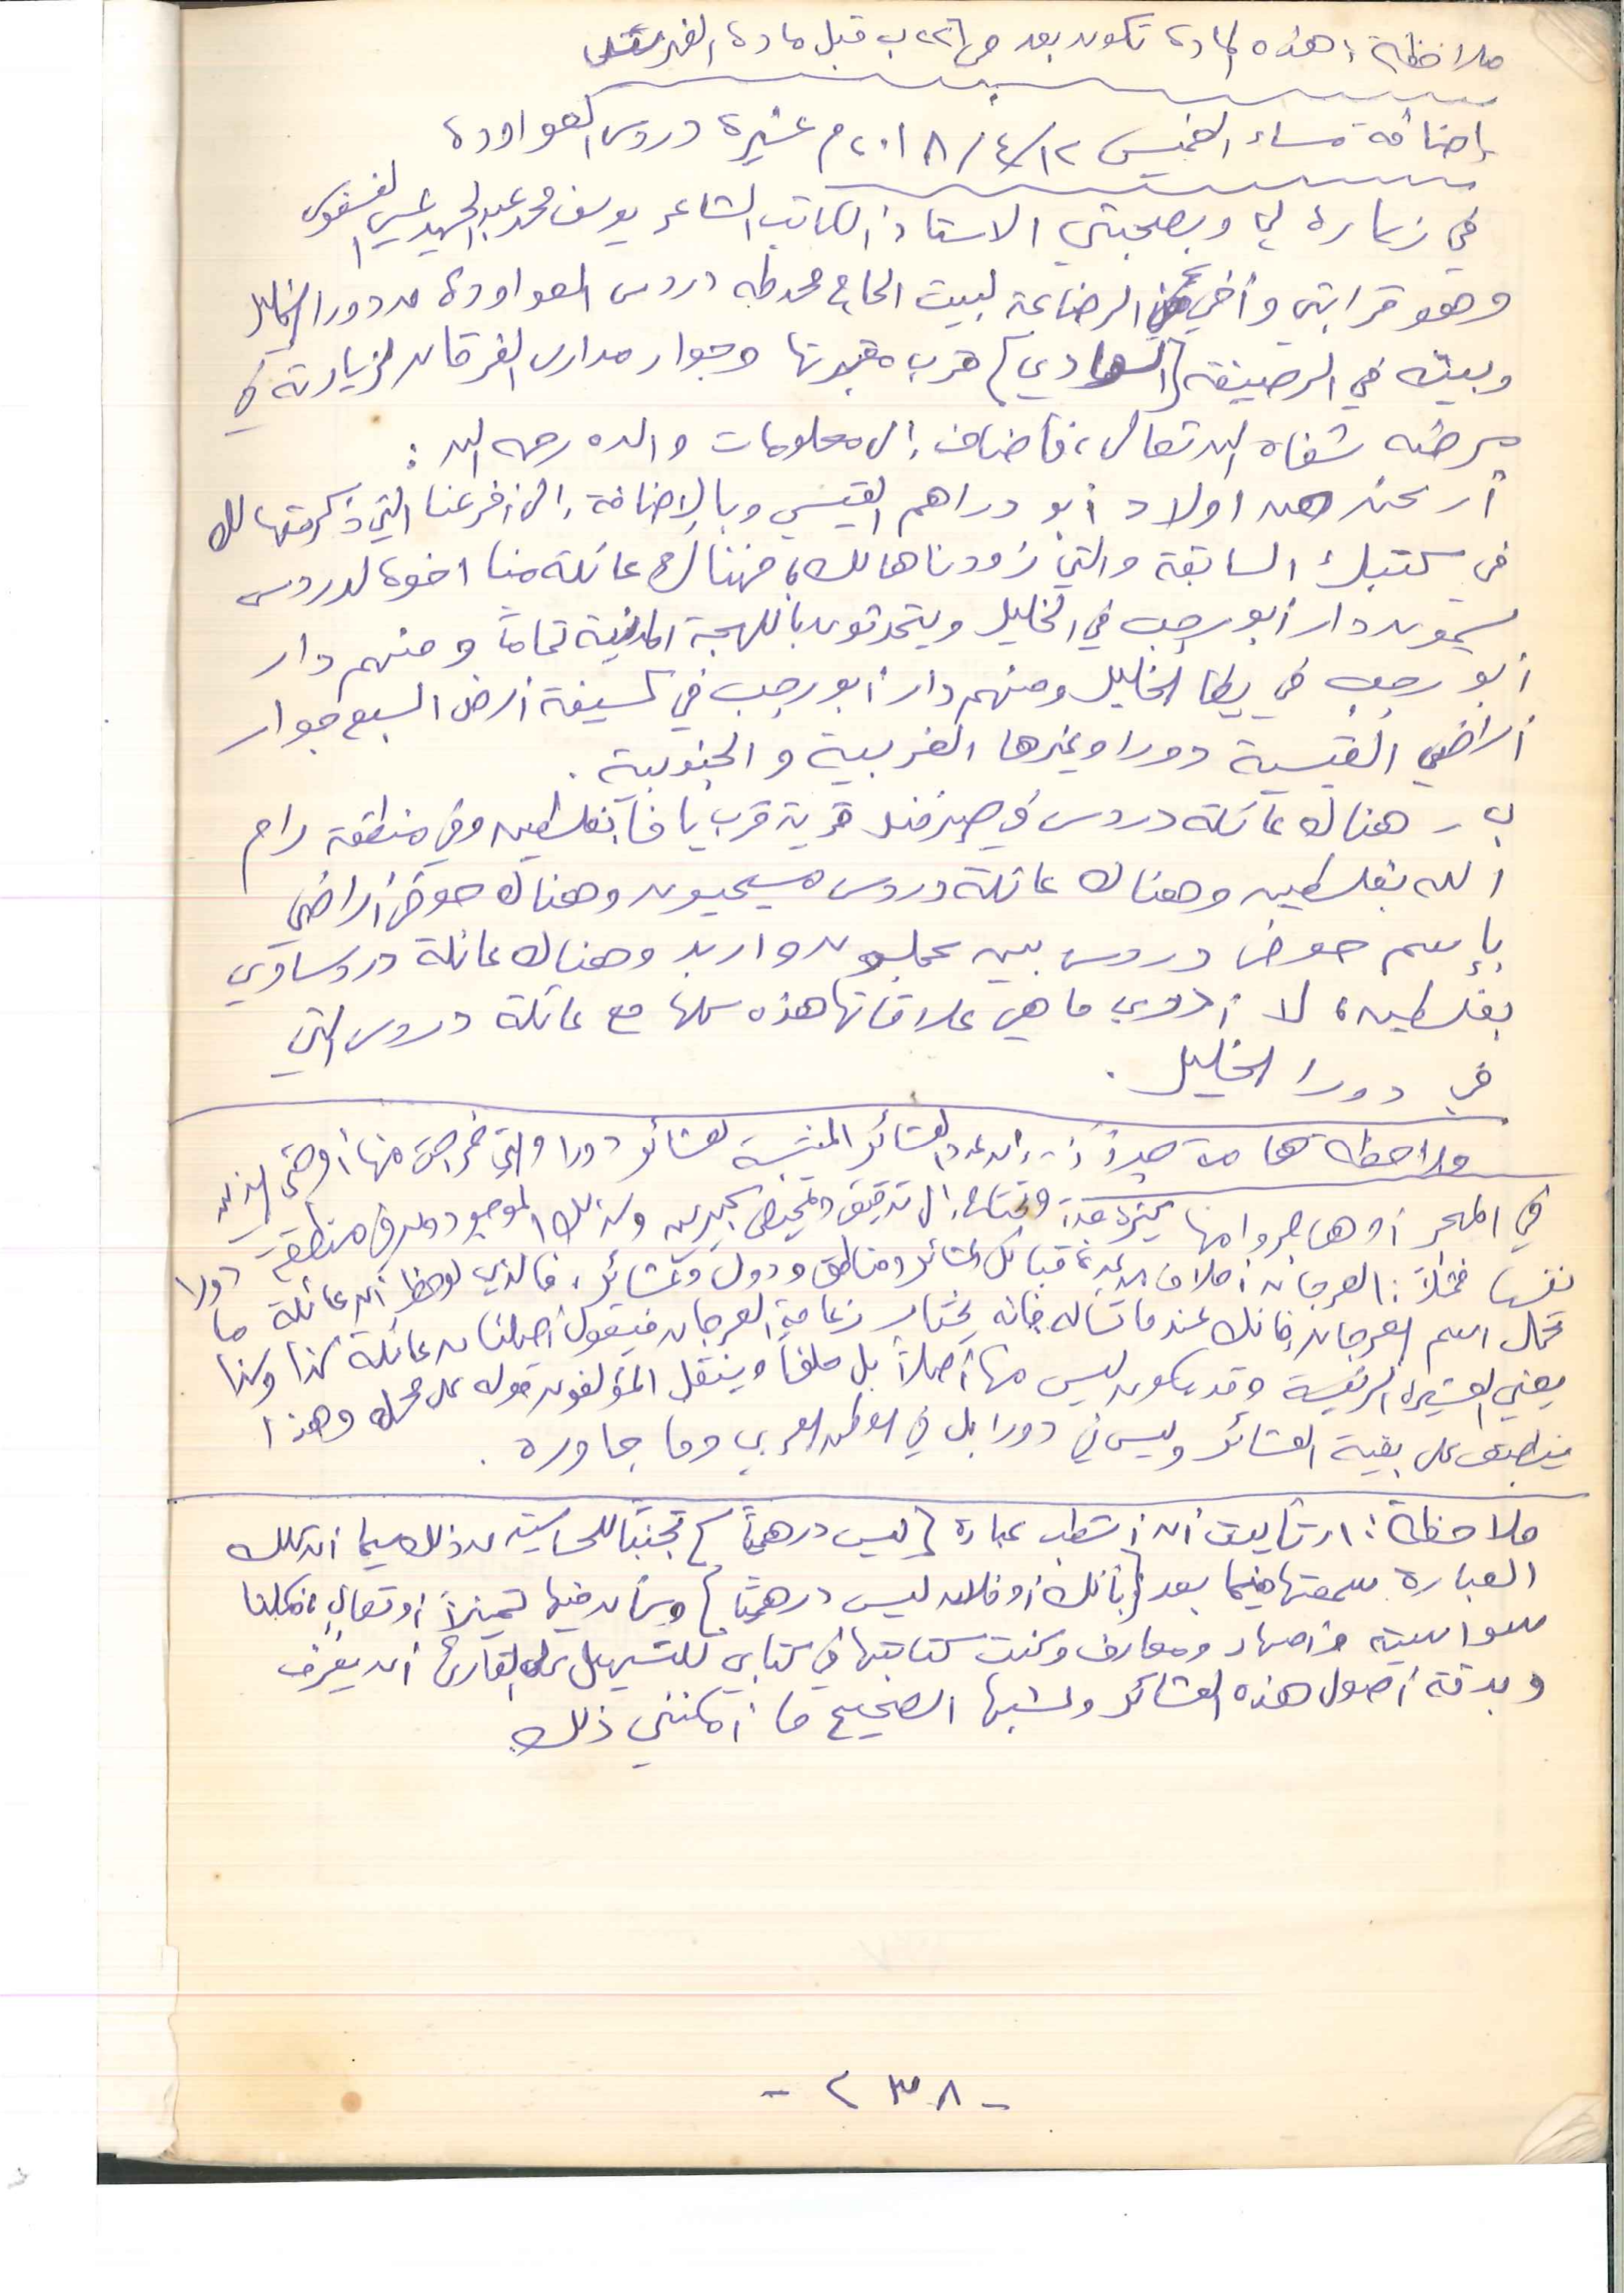 ملاحظة : هذه المادة تكون بعد ص ٢٢٦ ب قبل مادة الفهرس
إضافة مساء الخميس ٢٠١٨/٤/١٢م عشيرة دروس العواودة
في زيارة لي وبصحبتي الاستاذ الكاتب الشاعر يوسف محمد عبد الحميد عيسى الفسفوس
وهو قرابتي وأخي من الرضاعة لبيت الحاج محمد طه دروس العواودة من دورا الخليل
وبيته في الرصيفة {الهادي} قرب مقبرتها وجوار مدارس الفرقان لزيارته في
مرضه شفاه الله تعالى ، فأضاف إلى معلومات والده رحمه الله :
أ ـ نحن من اولاد أبو دراهم القيسي وبالإضافة إلى أفرعنا التي ذكرتها لك
في كتبك السابقة والتي زودناها لك ، فهناك عائلة منا اخوة لدروس
يسمون دار أبو رجب في الخليل ويتحدثون باللهجة المدنية تماماً ومنهم دار
أبو رجب في يطا الخليل ومنهم دار أبو رجب في كسيفة أرض السبع جوار
أراضي القيسية دورا وغيرها الغربية و الجنوبية .
ب ـ هناك عائلة دروس في صرفند قرية قرب يافا بفلسطين وفي منطقة رام
الله بفلسطين وهناك عائلة دروس مسيحيون وهناك حوض أراضي
بإسم حوض دروس بين عجلون واربد وهناك عائلة دروساوي
بفلسطين ، لا أدري ما هي علاقاتها هذه كلها مع عائلة دروس التي
في دورا الخليل .
ملاحظة هامة جداً جداً : إن عدد العشائر المنتسبة لعشائر دورا والتي خرجت منها أو حتى الذين
في المهجر أو هاجروا منها كثيرة جداً وتحتاج إلى تدقيق وتمحيص كبيرين وكذلك الموجودون في منطقة دورا
نفسها فمثلاً : العرجان أحلاف من عدة قبائل وعشائر ومناطق ودول وعشائر ، فالذي لوحظ أن عائلة ما
تحمل اسم العرجان فإنك عندما تسأله فإنه يختار زعامة العرجان فيقول أصلنا من عائلة كذا وكذا
يعني العشيرة الرئيسة وقد يكون ليس منها أصلاً بل حلفاً وينقل المؤلفون قوله على محمله وهذا
ينطبق على بقية العشائر وليس في دورا بل في الوطن العربي وما جاوره .
ملاحظة : ارتأيت أن أشطب عبارة { ليس درهمياً } تجنباً للحساسية من ذلك سيما أن تلك
العبارة سمعتها فيما بعد { بأنك أو فلان ليس درهمياً } وكأن فيها تميزاً أو تعالٍ فكلنا
سواسية وأصهار ومعارف وكنت كتابتها في كتابي للتسهيل على القارئ أن يعرف
وبدقة أصول هذه العشائر ونسبها الصحيح ما أمكنني ذلك
- ٢٣٨ -